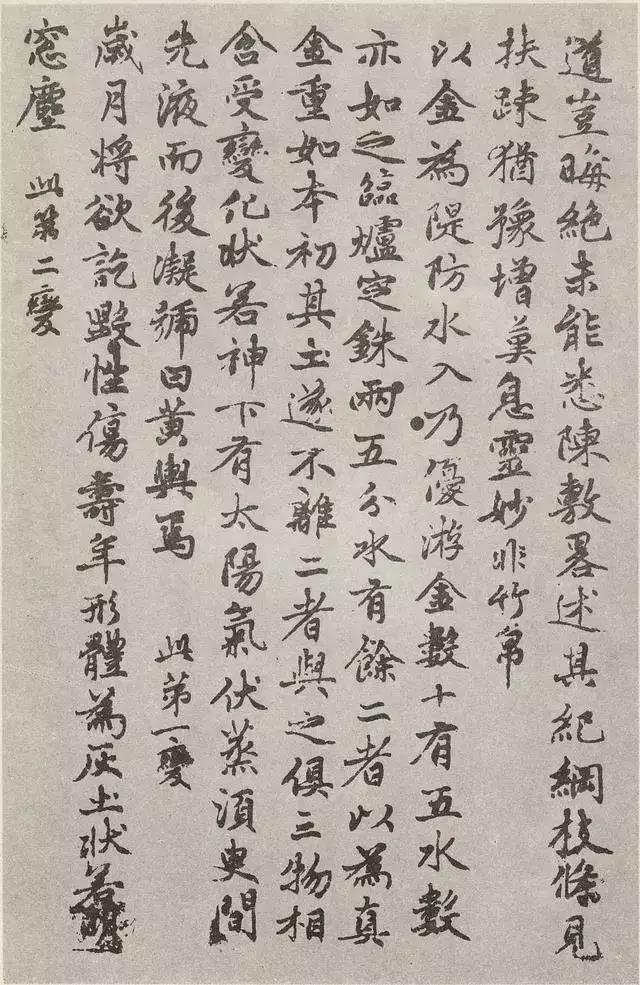 道豈晦絶未能悉陳敷畧述其紀綱枝條見
扶踈猶豫增莫息靈妙非竹帛
以金為隄防水入乃優游金數十有五水數
亦如之臨爐定銖兩五分水有餘二者以為真
金重如本初其土遂不離二者與之俱三物相
含受變化狀若神下有太陽氣伏蒸須臾間
先液而後凝號曰黄輿焉 此第一變
歲月將欲訖毀性傷壽年形體為灰土狀若明
窓塵 此第二變